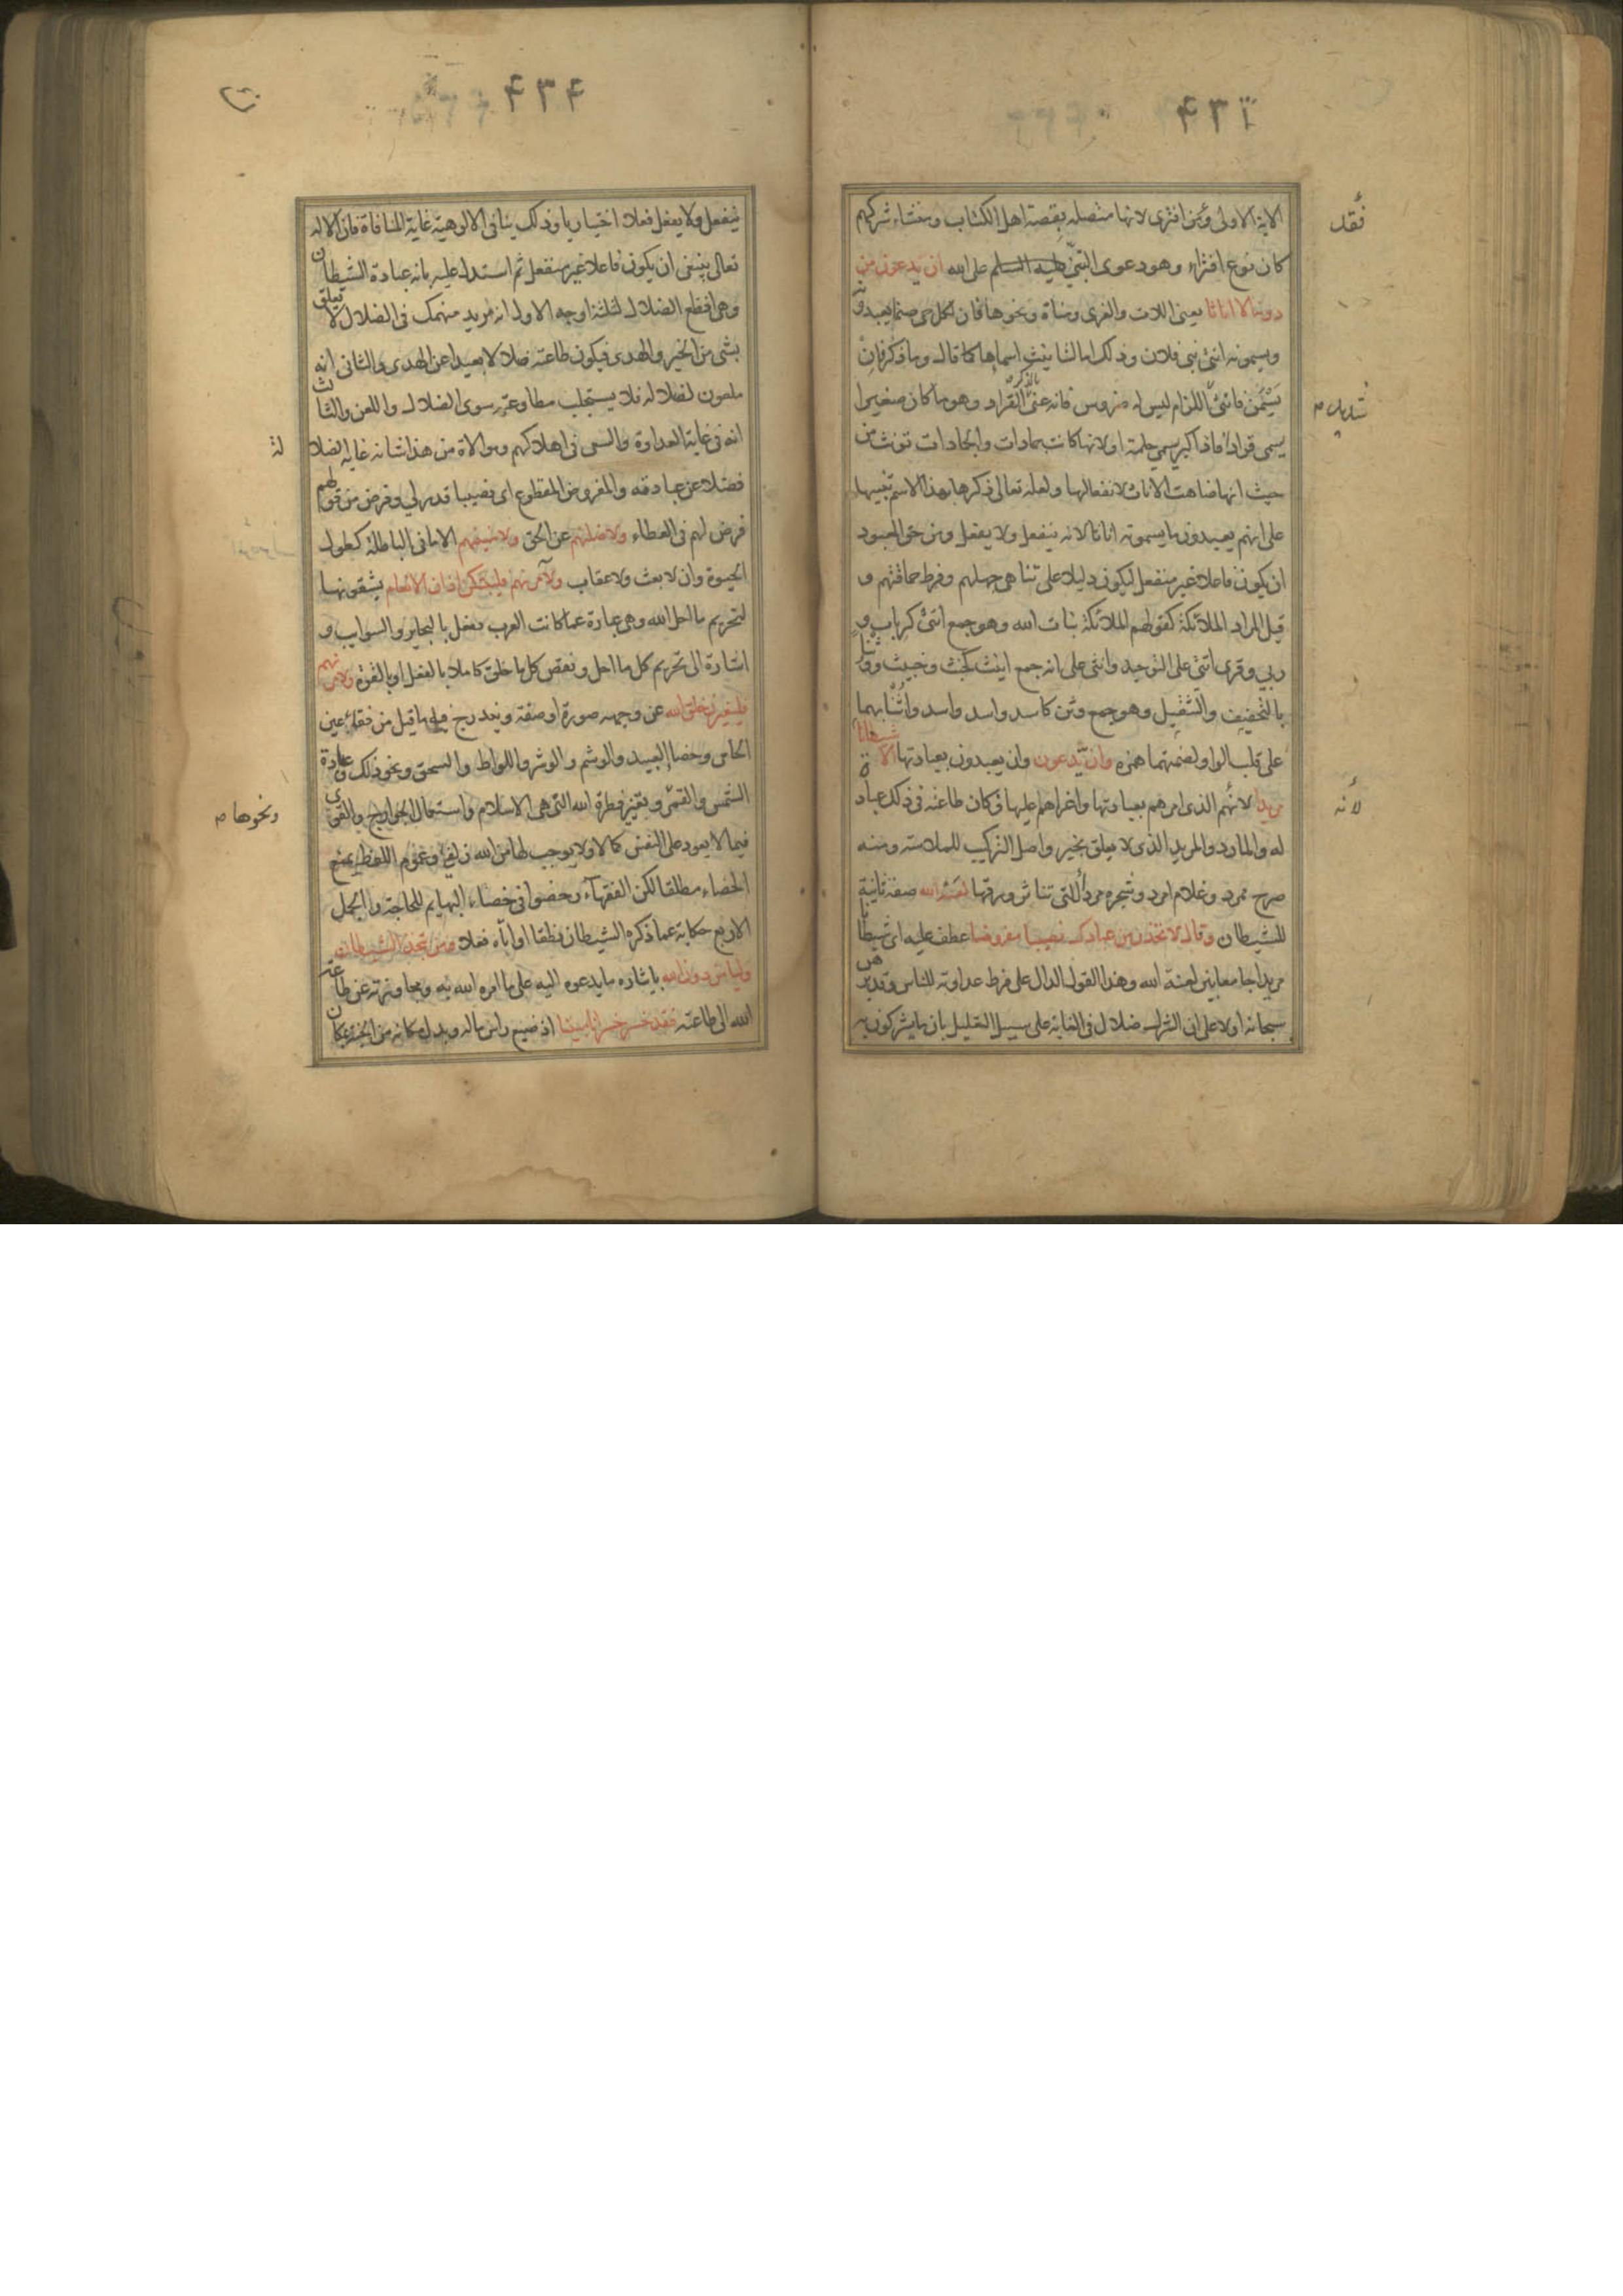 الاية الاولى ومن افترى لانها متصلة بقصة اهل الكتاب ومنشاء شركهم
كان نوع افتراء وهو دعوى التبني عليه السلم على الله ان يدعون من
دونه الا اناثا يعني اللات والعزى ومناة ونحوها فان لكل حي صنما يعبدونه
ويسمونه انثى بني فلان وذلك اما لتانيث اسمائها كما قال وما ذكر فان
يسمن فانثى اللزام ليس له ضروس فانه عنى القراد وهو ما كان صغيرا
يسمى قرادا فاذا كبر سمي حلمة او لانها كانت جمادات والجمادات تونث من
حيث انها ضاهت الاناث لانفعالها ولعله تعالى ذكرها بهذا الاسم تنبيها
على انهم يعبدون ما يسمونه اناثا لانه ينفعل ولا يفعل ومن حق المعبود
ان يكون فاعلا غير منفعل ليكون دليلا على تناهي جهلهم وفرط حماقتهم و
قيل المراد الملائكة كقولهم الملائكة بنات الله وهو جمع انثى كرباب و
ربى وقرى انثى على التوحيد وانثى على انه جمع انيث كخبث وخبيث ووثنا
بالتخفيف والتثقيل وهو جمع وثن كاسد واسد واسد واثنا بهما
على قلب الواو لضمتها همزه وان يدعون وان يعبدون بعبادتها الا شيطانا
مريدا لانهم الذى امرهم بعبادتها واغراهم عليها فكان طاعته فى ذلك عبادة
له والمارد والمريد الذى لا يعلق بخير واصل التركيب للملاسة ومنه
صرح ممرد وغلام امرد وشجره مردا للتى تناثر ورقها لعنه الله صفة ثانية
للشيطان وقال لاتخذن من عبادك نصيبا مفروضا عطف عليه اى شيطانا
مريدا جامعا بين لعنة الله وهذا القول الدال على فرط عداوته للناس وقد برهن
سبحانه اولا على ان الشرك ضلال فى الغاية على سبيل التعليل بان ما يشركون به
فقل
لانه
۴۳۴
ينفعل ولا يفعل فعلا اختياريا وذلك ينافى الالوهية غاية المنافاة فان الاله
تعالى ينبغى ان يكون فاعلا غير منفعل ثم استدل عليه بانه عبادة الشيطان
وهى افظع الضلال لثلثة اوجه الاول انه مريد منهمك فى الضلال لا يعلق
بشى من الخير والهدى فيكون طاعته ضلالا بعيدا عن الهدى والثانى انه
ملعون لضلاله فلا يستجلب مطاوعته سوى الضلال واللعن والثالث
انه فى غاية العداوة والسعى فى اهلاكهم وموالاة من هذا شانه غاية الضلا
لة
فضلا عن عبادته والمفروض المقطوع اى نصيبا قدر لي وفرض من قولهم
فرض لهم فى العطاء ولاضلنهم عن الحق ولامنينهم الامانى الباطلة كطول
الحيوة وان لا بعث ولا عقاب ولآمرنهم فليبتكن اذان الانعام يشقونها
لتحريم ما احل الله وهى عبارة عما كانت العرب تفعل بالبحاير والسوايب و
اشارة الى تحريم كل ما احل ونقص كل ما خلق كاملا بالفعل او بالقوة ولامرنهم
فليغيرن خلق الله عن وجهه صورة او صفة ويندرج فيه ما قيل من فقاء عين
الحامى وخصا العبيد والوشم والوشر واللواط والسحق ونحو ذلك وعبادة
الشمس والقمر وتغيير فطرة الله التى هى الاسلام واستعمال الجوارح والقوى
ونحوها م
فيما لا يعود على النفس كمالا ولا يوجب لها من الله زلفى وعموم اللفظ يمنع
الخصاء مطلقا لكن الفقهآء رخصوا فى خصاء البهايم للحاجة والجمل
الاربع حكاية عما ذكره الشيطان نطقا او اتاه فعلا ومن يتخذ الشيطان
وليا من دون الله بايثاره ما يدعوه اليه على ما امره الله به ومجاوزته عن طاعة
الله الى طاعته فقد خسر خسرانا مبينا اذ ضيع راس ماله وبدل مكانه من الجنة بمكان